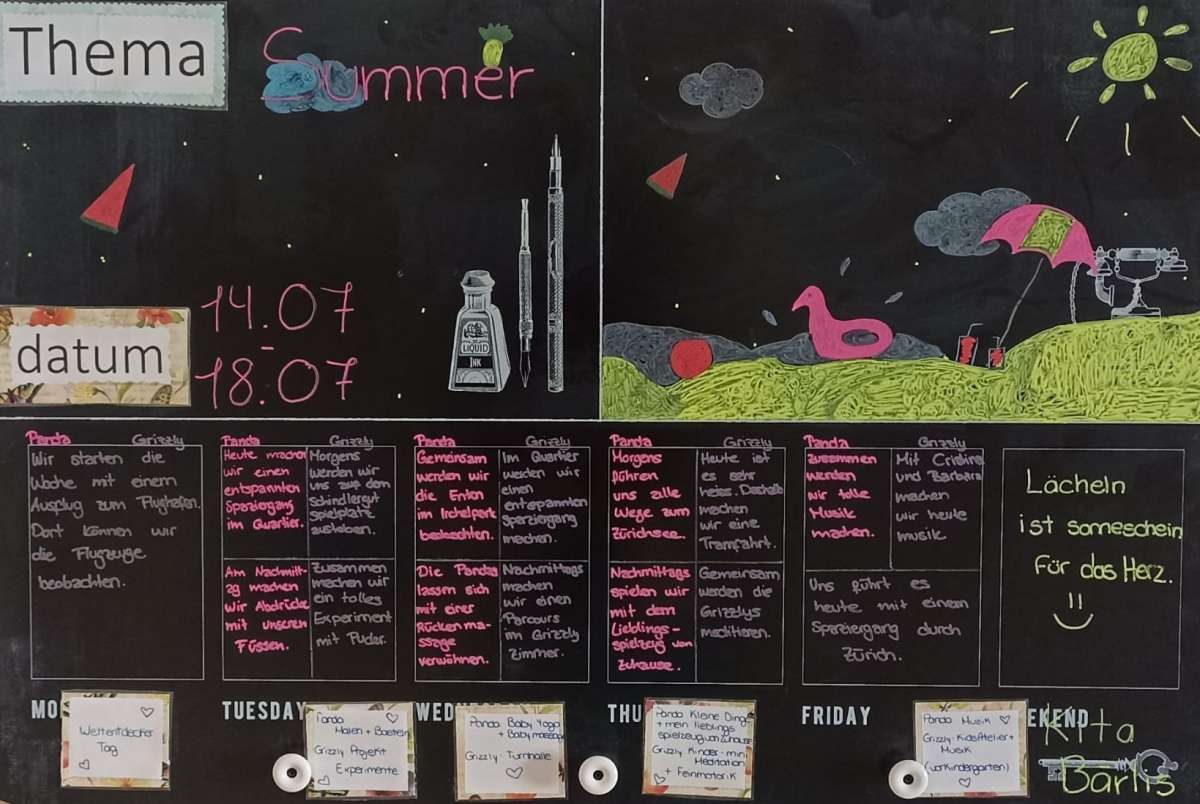 Thema
Summer
datum
14.07
-
18.07
LIQUID
INK
Panda Grizzly
Wir starten die
Woche mit einem
Ausflug zum Flughafen.
Dort können wir
die Flugzeuge
beobachten.
Panda Grizzly
Heute machen
wir einen
entspannten
Spaziergang
im Quartier.
Morgens
werden wir
uns auf dem
Schindlergut
Spielplatz
austoben.
Am Nachmitt-
ag machen
wir Abdrücke
mit unseren
Füssen.
Zusammen
machen wir
ein tolles
Experiment
mit Puder.
Panda Grizzly
Gemeinsam
werden wir
die Enten
im Irchelpark
beobachten.
Im Quartier
werden wir
einen
entspannten
Spaziergang
machen.
Die Pandas
lassen sich
mit einer
Rückenma-
ssage
verwöhnen.
Nachmittags
machen
wir einen
Parcours
im Grizzly
Zimmer.
Panda Grizzly
Morgens
führen
uns alle
Wege zum
Zürichsee.
Heute ist
es sehr
heiss. Deshalb
machen
wir eine
Tramfahrt.
Nachmittags
spielen wir
mit dem
Lieblings-
spielzeug von
Zuhause.
Gemeinsam
werden die
Grizzlys
meditieren.
Panda Grizzly
Zusammen
werden
wir tolle
Musik
machen.
Mit Cristina
und Barbara
machen
wir heute
musik
Uns führt es
heute mit einem
Spaziergang durch
Zürich.
Lächeln
ist sonneschein
für das Herz.
MO
TUESDAY
THU
FRIDAY
EKEND
Weltentdecker
Tag
Panda
Malen + Basteln
Grizzly Projekt
Experimente
Panda Baby Yoga
+ Babymassage
Grizzly Turnhalle
Panda Kleine Dinge
+ mein lieblings
spielzeug von Zuhause
Grizzly Kinder-mini
Meditation
+ Feinmotorik
Panda Musik
Grizzly-KidsAtelier+
Musik
(vorkindergarten)
Kita
Bärlis